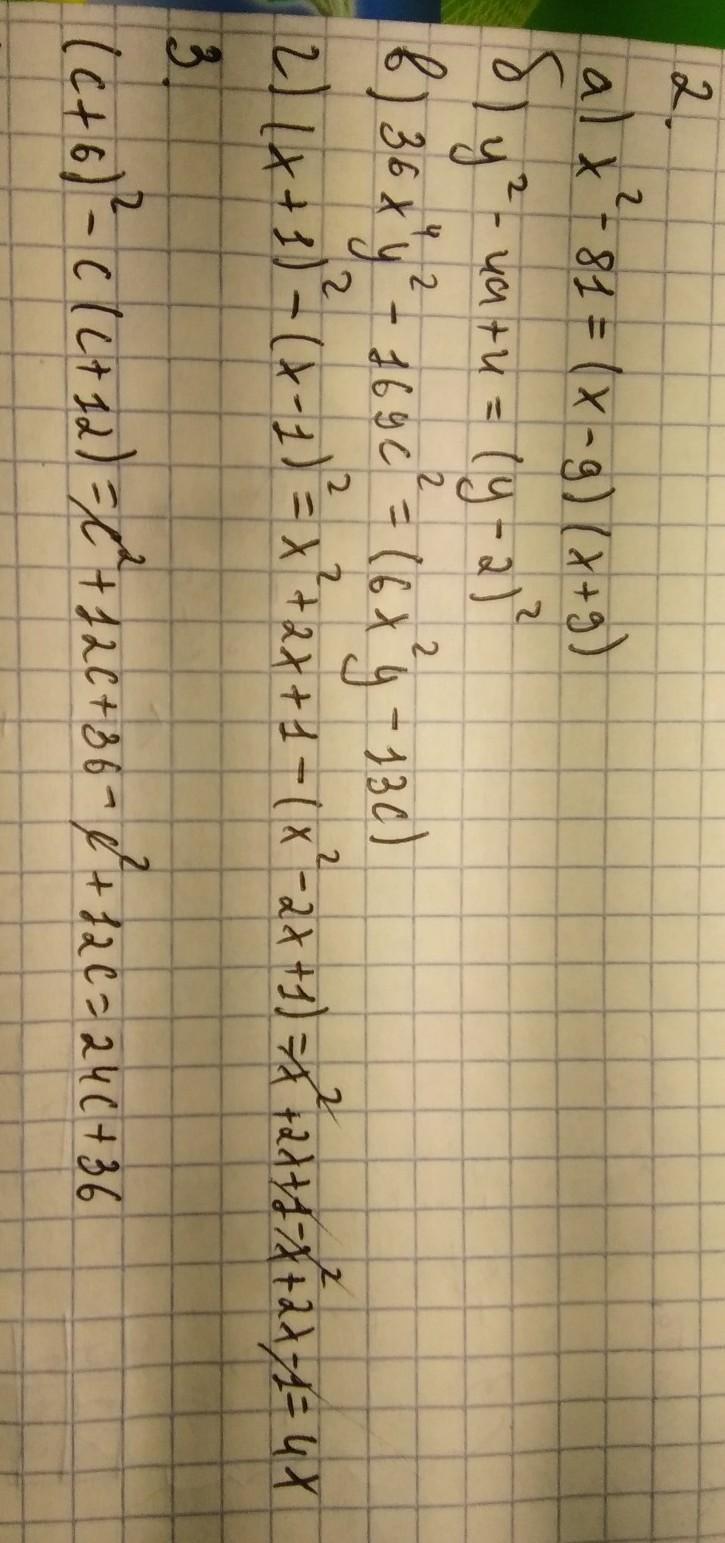 2.
а) x² - 81 = (x - 9) (x + 9)
б) y² - 4a + 4 = (y - 2)²
в) 36x⁴y² - 169c² = (6x²y - 13c)
г) (x + 1)² - (x - 1)² = x² + 2x + 1 - (x² - 2x + 1) = x² + 2x + 1 - x² + 2x - 1 = 4x
3.
(c + 6)² - c (c + 12) = c² + 12c + 36 - c² + 12c = 24c + 36